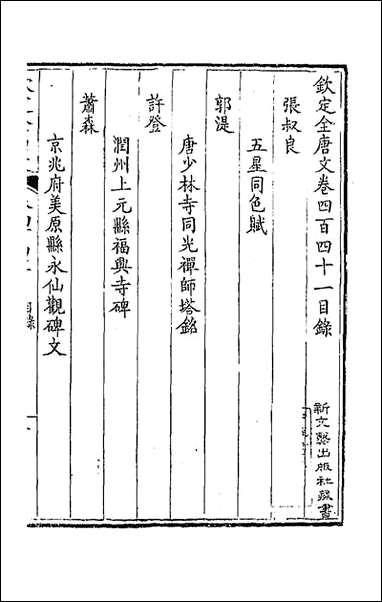 欽定全唐文卷四百四十一目錄
張叔良
五星同色賦
郭湜
唐少林寺同光禪師塔銘
許登
潤州上元縣福興寺碑
蕭森
京兆府美原縣永仙觀碑文
目錄
新文豐出版社藏書